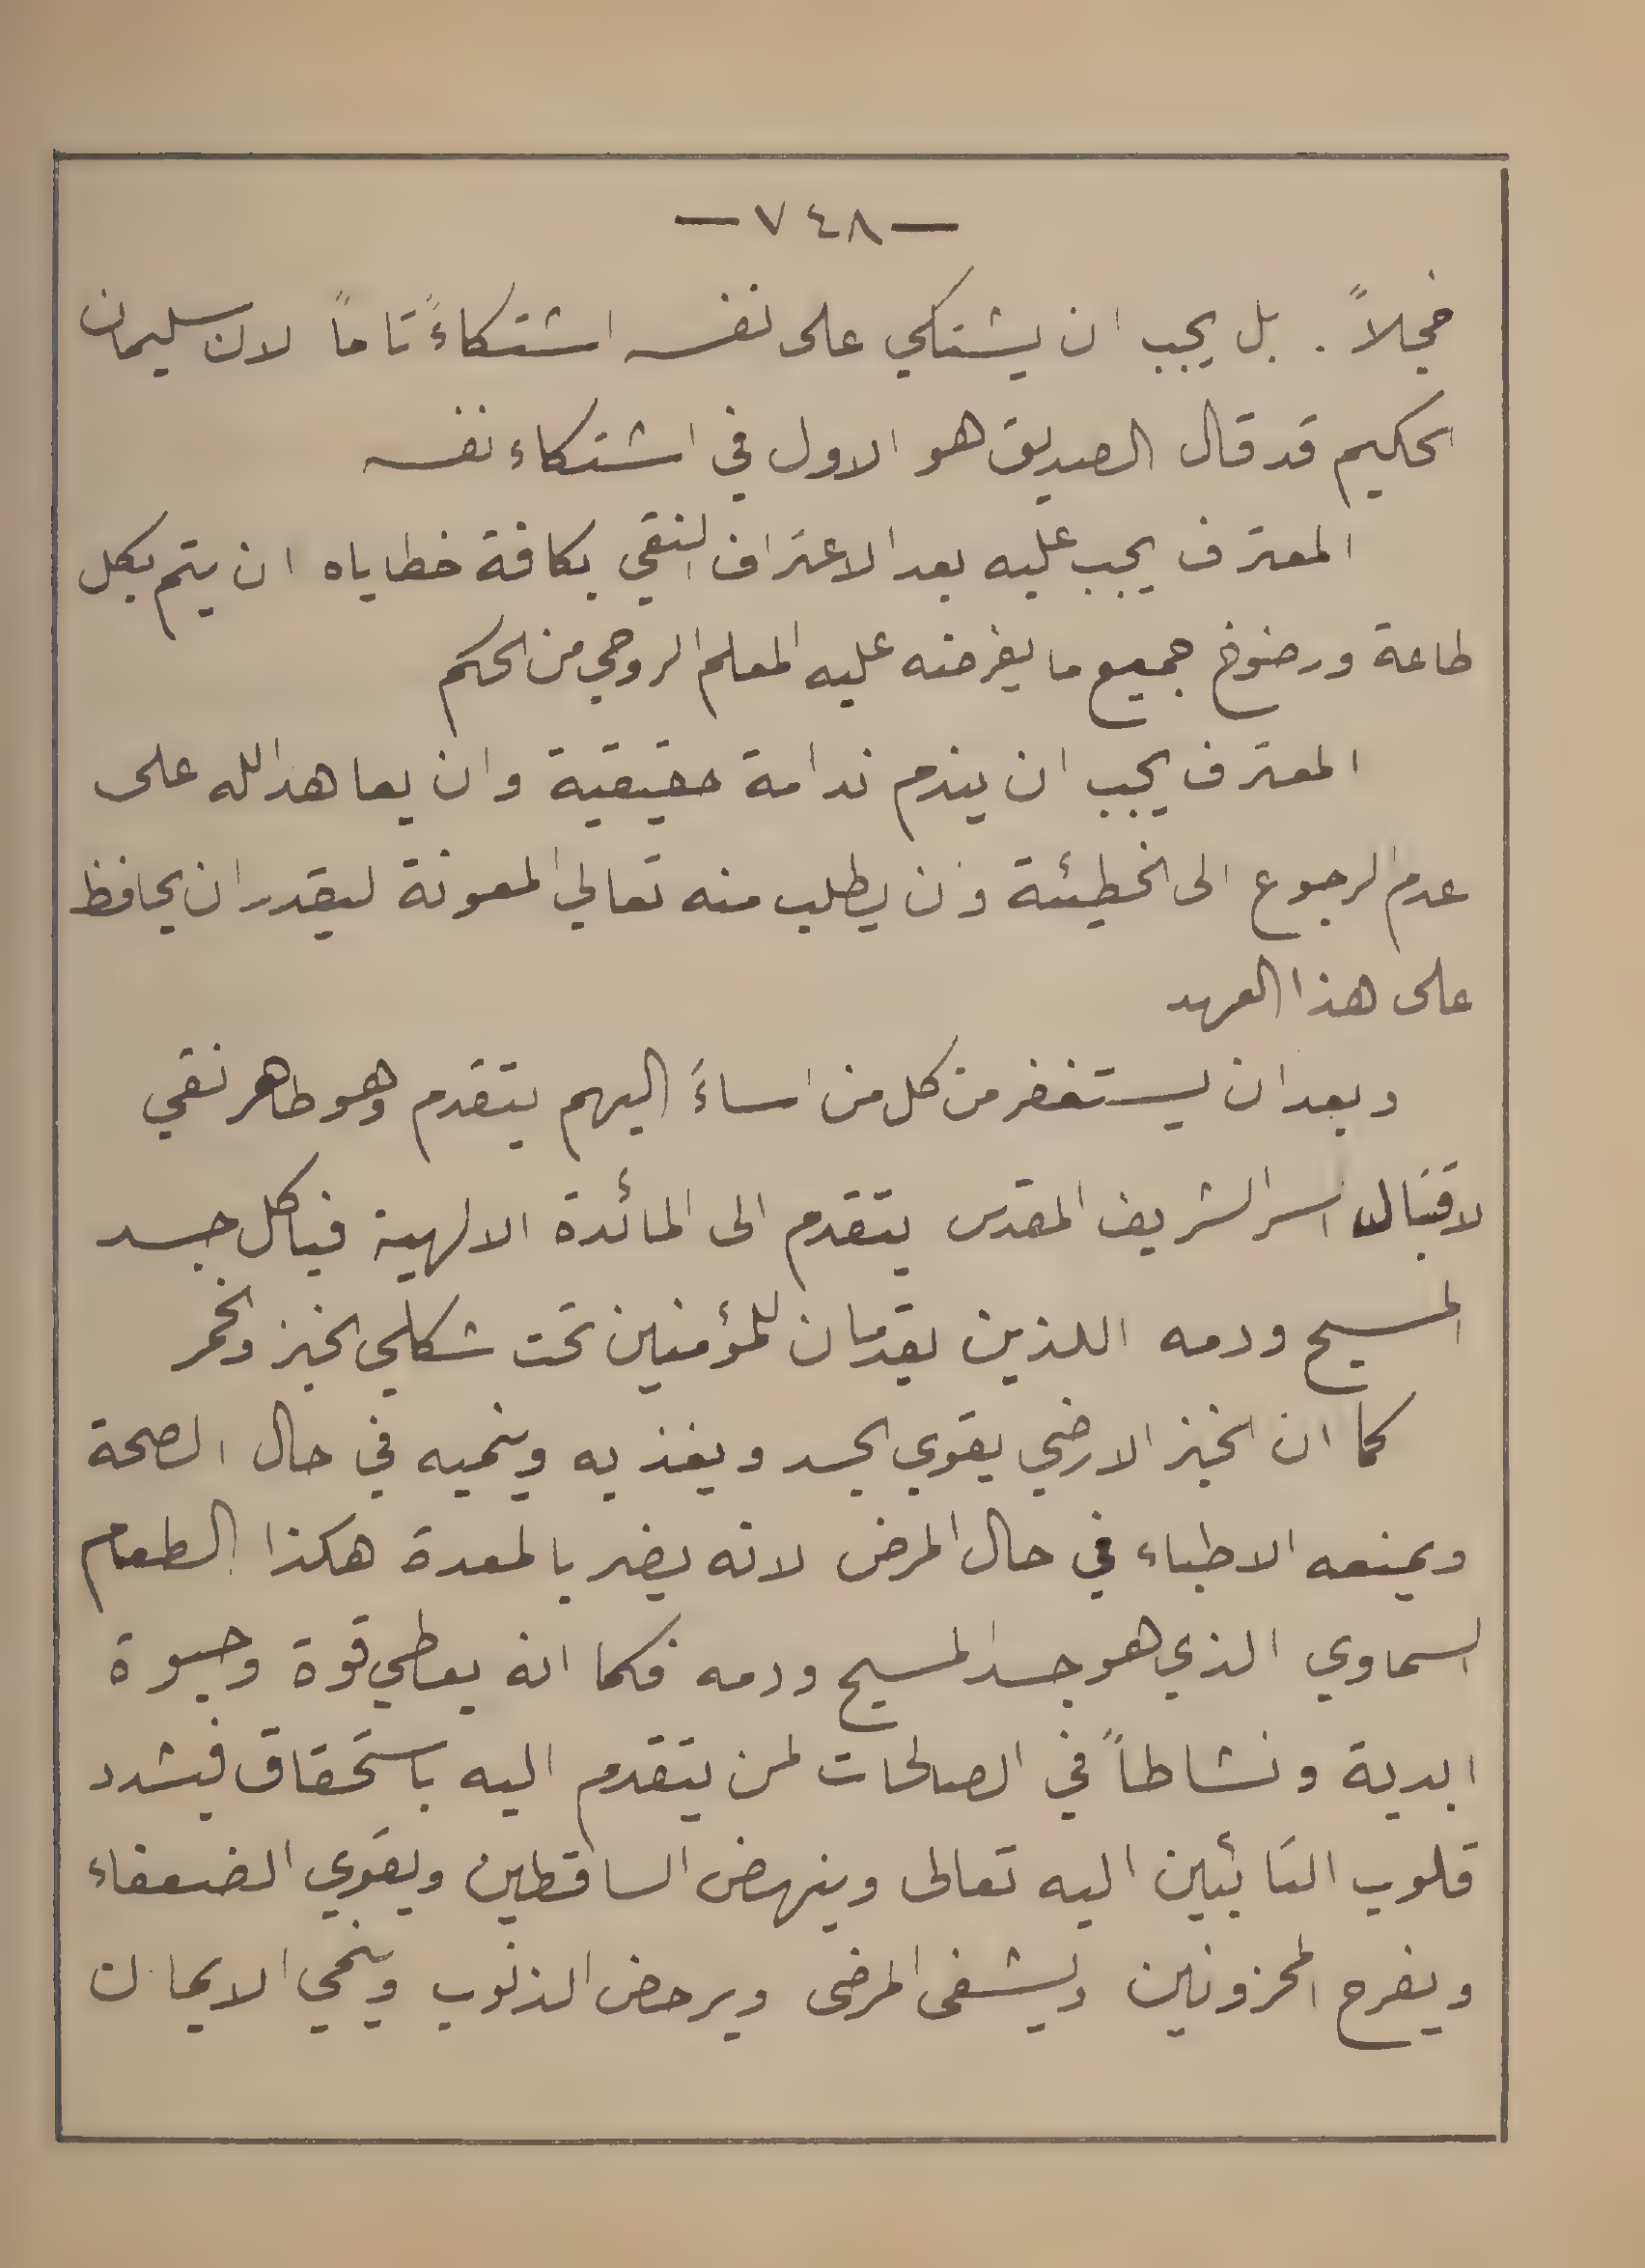 —٧٤٨—
خجلاً. بل يجب ان يشتكي على نفسه اشتكاءً تاماً لان سليمان
الحكيم قد قال الصديق هو الاول في اشتكاء نفسه
المعترف يجب عليه بعد الاعتراف النقي بكافة خطاياه ان يتم بكل
طاعة ورضوخ جميع ما يفرضه عليه المعلم الروحي من الحكم
المعترف يجب ان يندم ندامة حقيقية وان يعاهد الله على
عدم الرجوع الى الخطيئة وان يطلب منه تعالي المعونة ليقدر ان يحافظ
على هذا العهد
وبعد ان يستغفر من كل من اساءَ اليهم يتقدم وهو طاهر نقي
لاقتبال السر الشريف المقدس يتقدم الى المائدة الالهية فياكل جسد
المسيح ودمه اللذين يقدمان للمؤمنين تحت شكلي الخبز والخمر
كما ان الخبز الارضي يقوي الجسد ويغذيه وينميه في حال الصحة
ويمنعه الاطباء في حال المرض لانه يضر بالمعدة هكذا الطعام
السماوي الذي هو جسد المسيح ودمه فكما انه يعطي قوة وحيوة
ابدية ونشاطاً في الصالحات لمن يتقدم اليه باستحقاق فيشدد
قلوب التائبين اليه تعالى وينهض الساقطين ويقوي الضعفاء
ويفرح المحزونين ويشفى المرضى ويرحض الذنوب وينمي الايمان